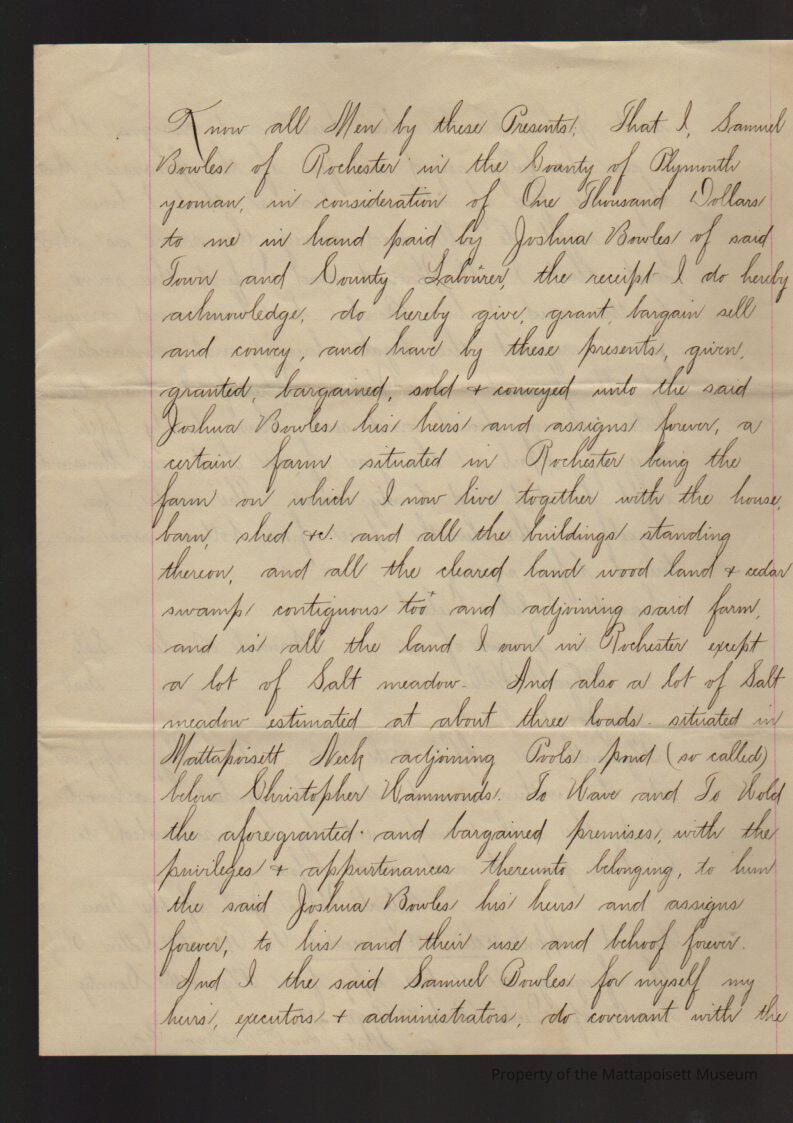 Know all Men by these Presents, That I, Samuel
Bowles of Rochester in the County of Plymouth
yeoman, in consideration of One Thousand Dollars
to me in hand paid by Joshua Bowles of said
Town and County Labourer, the receipt I do hereby
acknowledge, do hereby give, grant, bargain sell
and convey, and have by these presents, given,
granted, bargained, sold & conveyed unto the said
Joshua Bowles his heirs and assigns forever, a
certain farm situated in Rochester being the
farm on which I now live together with the house,
barn, shed &c. and all the buildings standing
thereon, and all the cleared land wood land & cedar
swamp contiguous too and adjoining said farm,
and is all the land I own in Rochester except
a lot of Salt meadow. And also a lot of Salt
meadow estimated at about three loads. situated in
Mattapoisett Neck adjoining Pools pond (so called)
below Christopher Hammonds. To Have and To Hold
the aforegranted and bargained premises, with the
privileges & appurtenances thereunto belonging, to him
the said Joshua Bowles his heirs and assigns
forever, to his and their use and behoof forever.
And I the said Samuel Bowles for myself my
heirs, executors & administrators, do covenant with the
Property of the Mattapoisett Museum